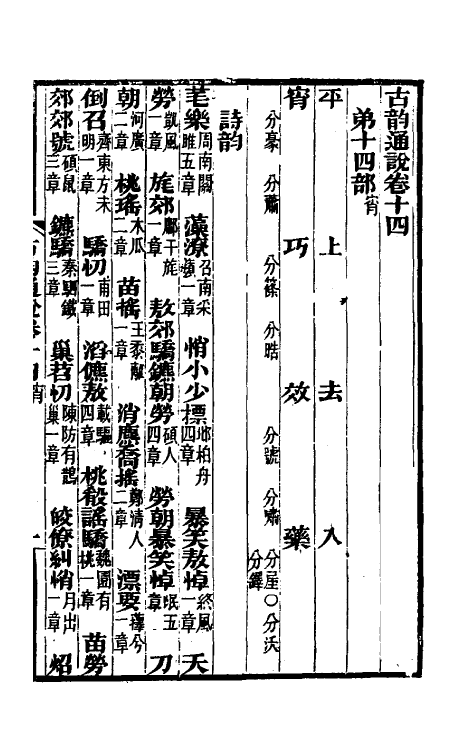 古韵通說卷十四
弟十四部宵
平 上 去 入
宵 巧 效 藥
分豪 分蕭 分篠 分晧 分號 分嘯 分屋○分沃 分鐸
詩韵
芼樂周南關雎五章 藻潦召南采蘋一章 悄小少摽邶柏舟四章 暴笑敖悼終風一章 夭
勞凱風一章 旄郊鄘干旄一章 敖郊驕鑣朝勞碩人四章 勞朝暴笑悼氓五章 刀
朝河廣二章 桃瑤木瓜二章 苗搖王黍離一章 消麃喬搖鄭清人二章 漂要蘀兮二章
倒召齊東方未明一章 驕忉甫田一章 滔儦敖載驅四章 桃殽謠驕魏園有桃一章 苗勞
郊郊號碩鼠三章 鑣驕秦駟鐵三章 巢苕忉陳防有鵲巢一章 皎僚糾悄月出一章 炤